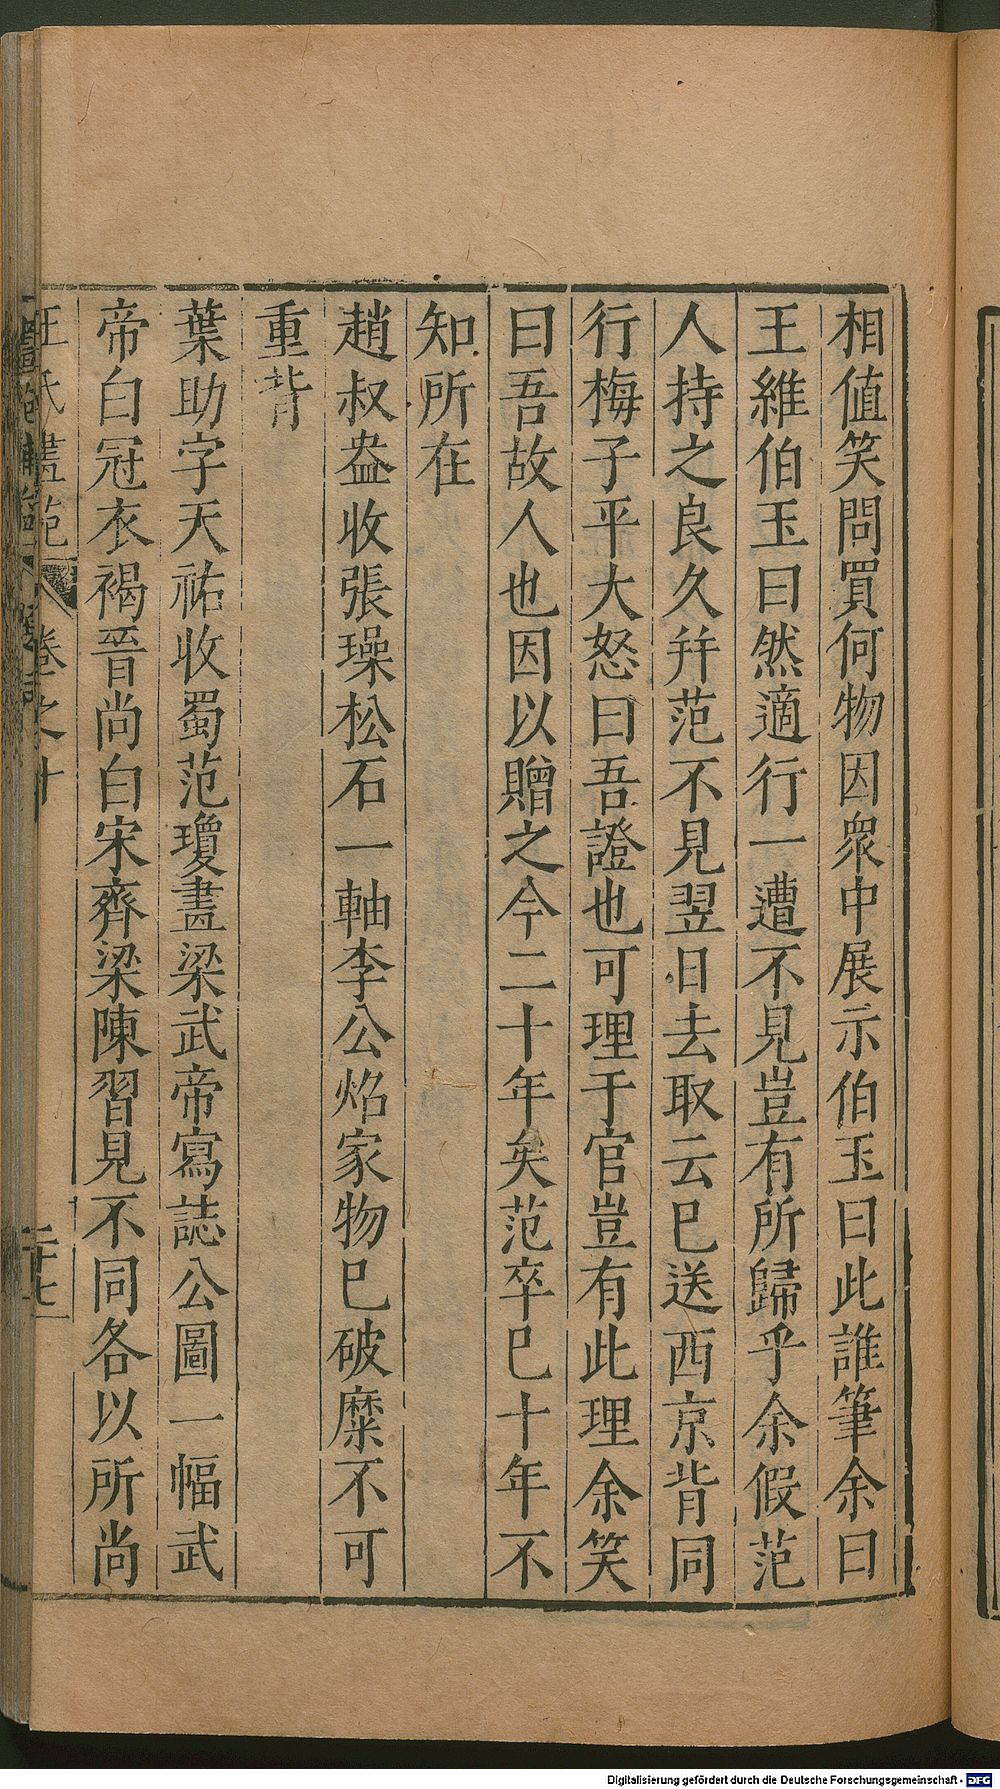 相值笑問買何物因衆中展示伯玉曰此誰筆余曰
王維伯玉曰然適行一遭不見豈有所歸乎余假范
人持之良久幷范不見翌日去取云已送西京背同
行梅子平大怒曰吾證也可理于官豈有此理余笑
曰吾故人也因以贈之今二十年矣范卒已十年不
知所在
趙叔盎收張璪松石一軸李公焰家物已破糜不可
重背
葉助字天祐收蜀范瓊畫梁武帝寫誌公圖一幅武
帝白冠衣褐晉尚白宋齊梁陳習見不同各以所尚
王氏畫苑 卷之十 二十七
Digitalisierung gefördert durch die Deutsche Forschungsgemeinschaft - DFG